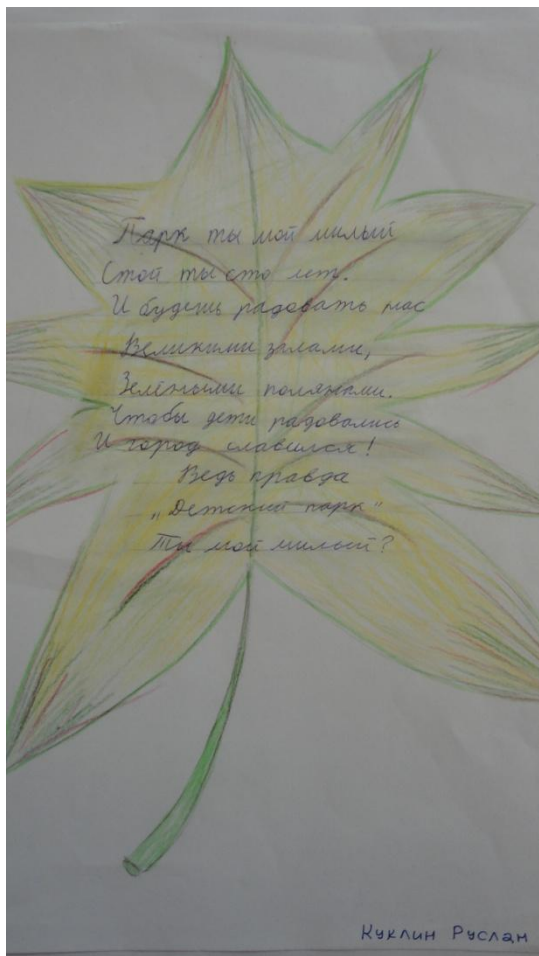 Парк ты мой милый
Стой ты сто лет.
И будешь радовать нас
Великими залами,
Зелёными полянами.
Чтобы дети радовались
И город славился!
Ведь правда
„Детский парк"
Ты мой милый?
Куклин Руслан